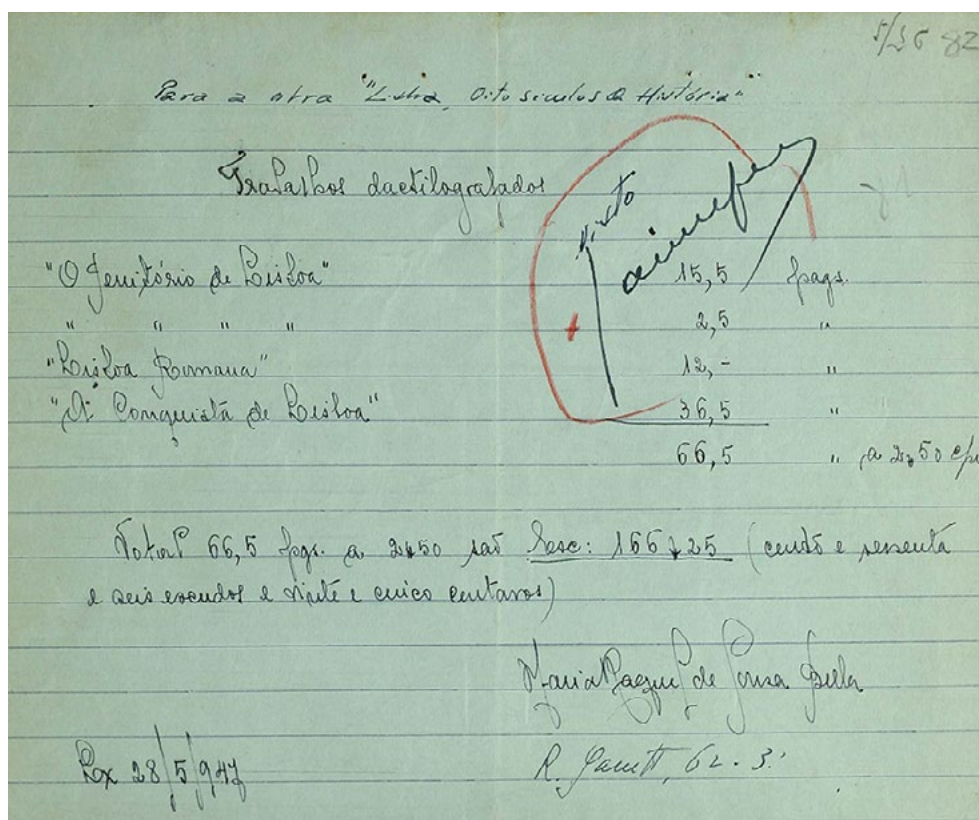 5/36 82
Para a obra "Lisboa, Oito séculos de História"
Trabalhos dactilografados
Visto
"O Território de Lisboa" 15,5 pags.
" " " " 2,5 "
"Lisboa Romana" 12,- "
"A Conquista de Lisboa" 36,5 "
66,5 " a 2$50 c/
Total 66,5 pgs. a 2$50 são Sesc: 166$25 (cento e sessenta
e seis escudos e vinte e cinco centavos)
Maria Raquel de Sousa
R. Garrett, 62. 3.º
Lx 28/5/947